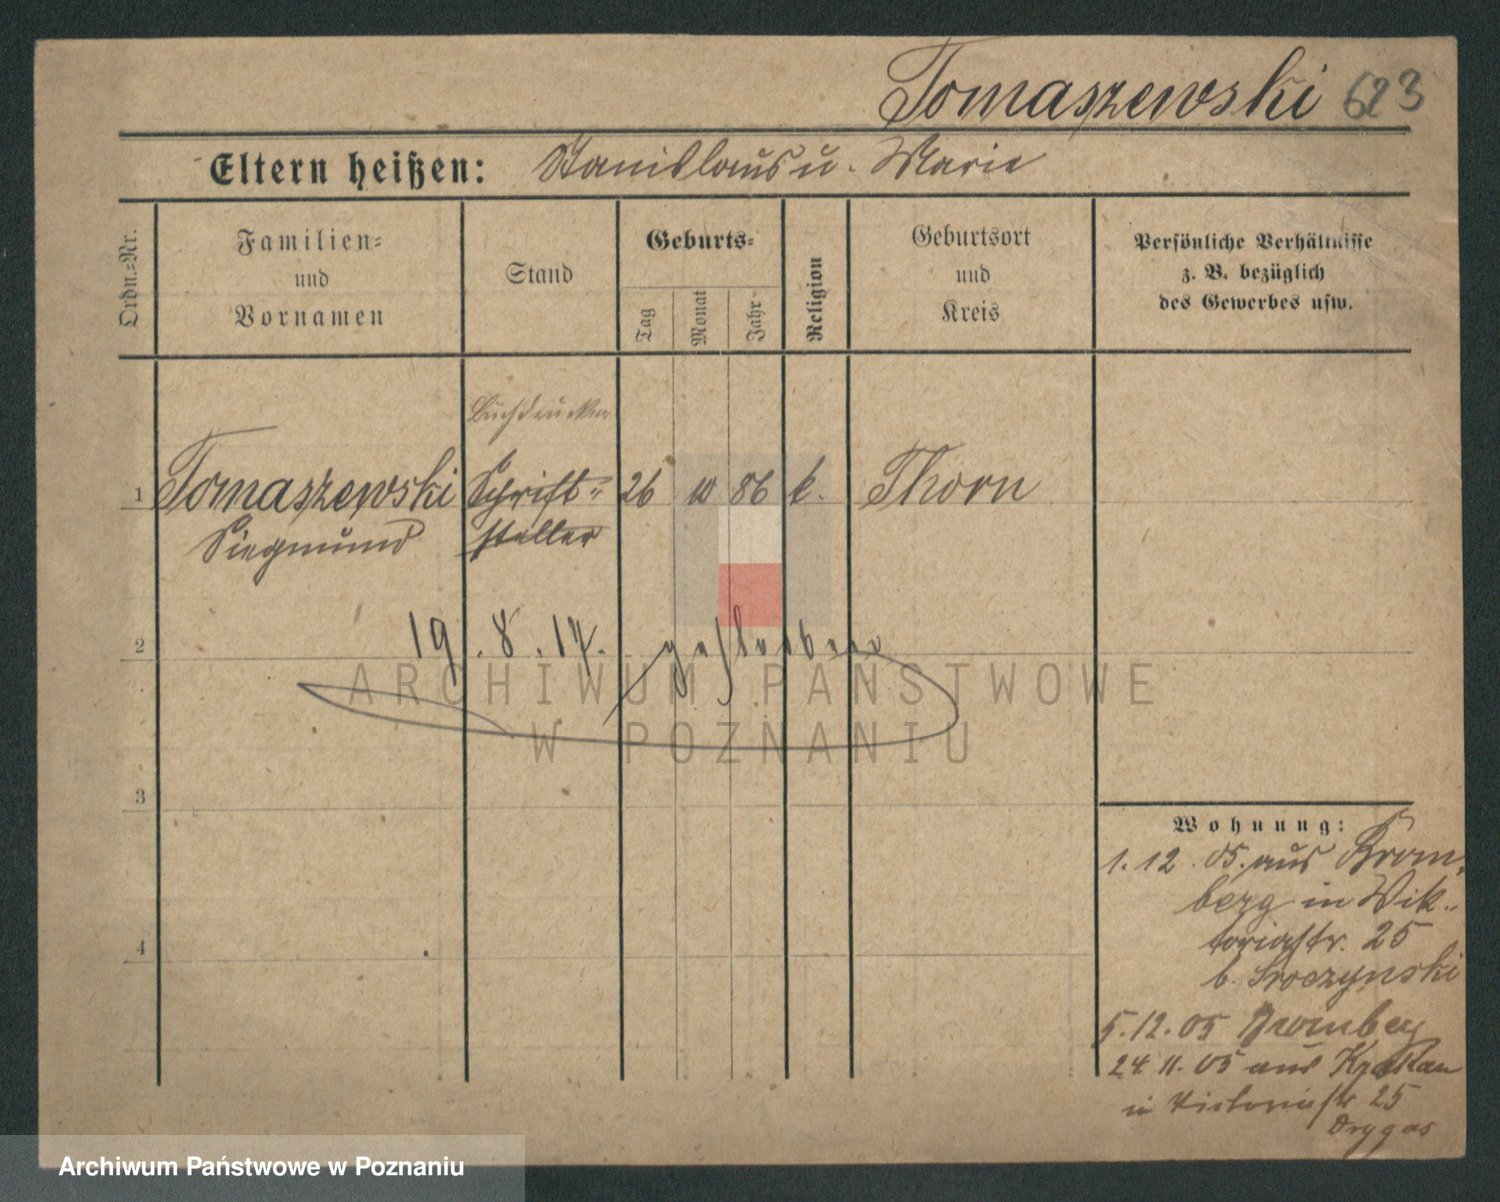 Tomaszewski 623
Eltern heißen: Stanislaus u. Marie
Ordn.=Nr.
Familien=
und
Vornamen
Stand
Geburts=
Tag
Monat
Jahr
Religion
Geburtsort
und
Kreis
Persönliche Verhältnisse
z. B. bezüglich
des Gewerbes usw.
Buchdrucker
1 Tomaszewski Schrift= 26 10 86 k. Thorn
Siegmund steller
2 19.8.17. gestorben
3
4
Wohnung:
1.12.05. aus Brom=
berg in Vik=
toriastr. 25
b. Sroczynski
5.12.05 Bromberg
24.11.05 aus Krakau
in Victoriastr 25
Drygas
ARCHIWUM PAŃSTWOWE
W POZNANIU
Archiwum Państwowe w Poznaniu